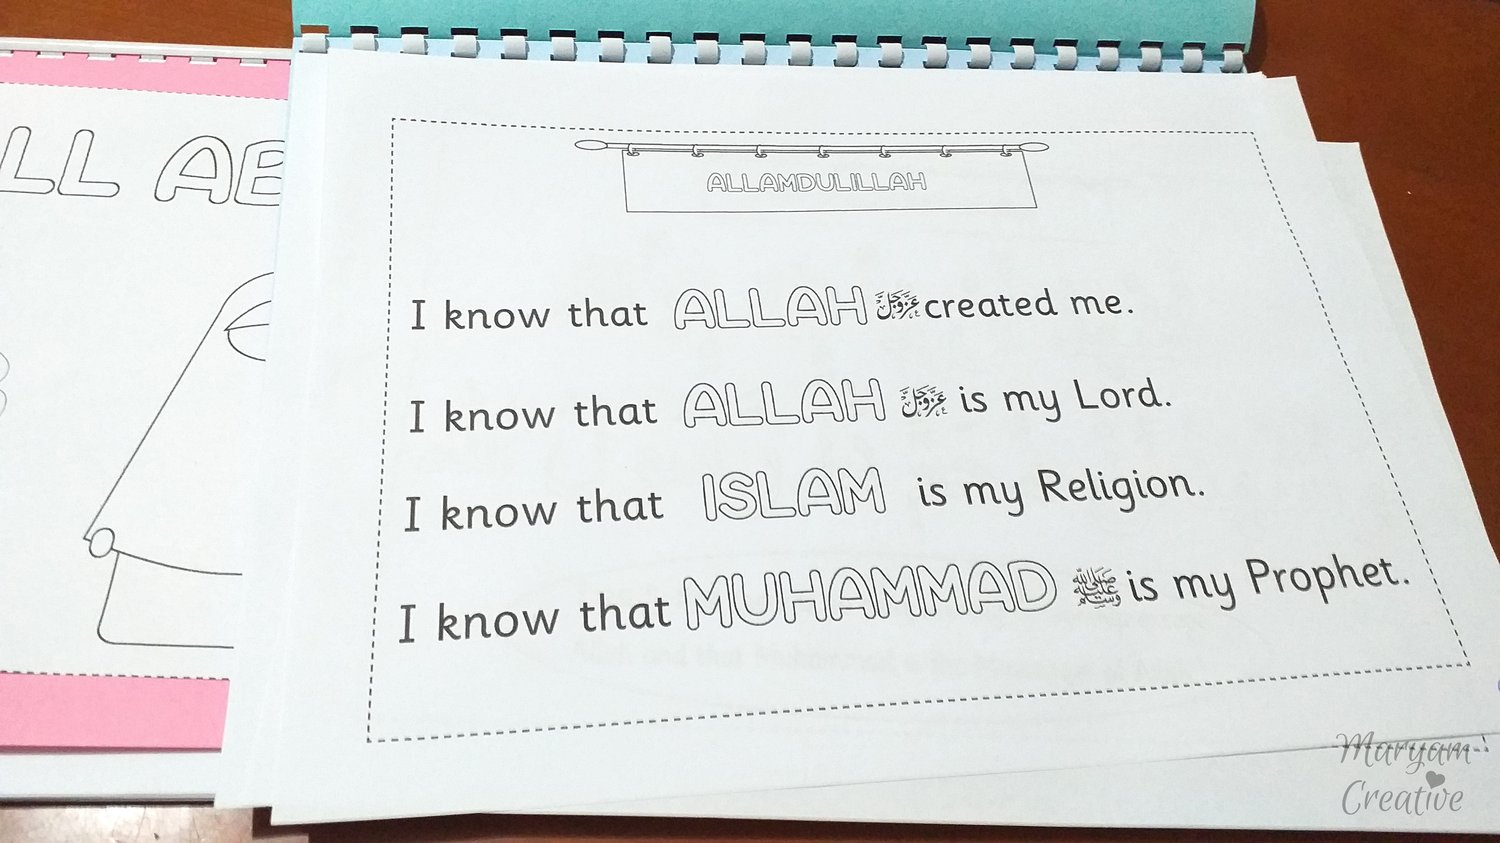 LL AB
ALLAMDULILLAH
I know that ALLAH عزوجل created me.
I know that ALLAH عزوجل is my Lord.
I know that ISLAM is my Religion.
I know that MUHAMMAD ﷺ is my Prophet.
Maryam
Creative